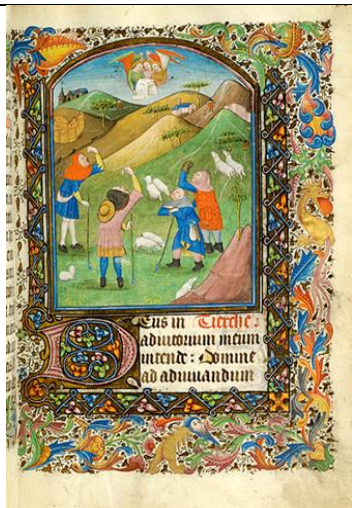 DEus in Tierche :
adiutorium meum
intende : Domine
ad adiuuandum